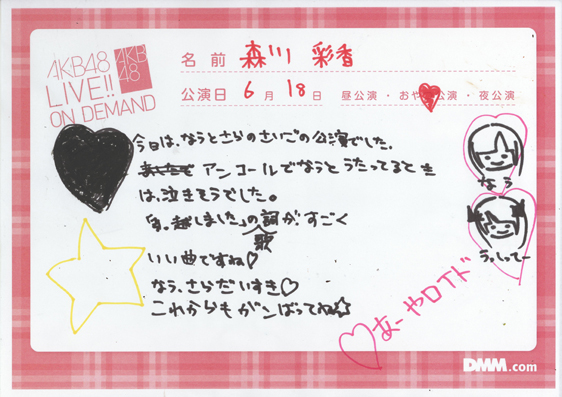 AKB48
LIVE!!
ON DEMAND
AKB
48
名前 森川 彩香
公演日 6月18日 昼公演・おや♥公演・夜公演
今日は、なうとさらのさいごの公演でした。
アンコールでなうとうたってるとき
は、泣きそうでした。
越しました」の歌詞が、すごく
いい曲ですね♡
なう、さらだいすき♡
これからもがンばってね☆
なう
うっしってー
♡あーやロイド
DMM.com